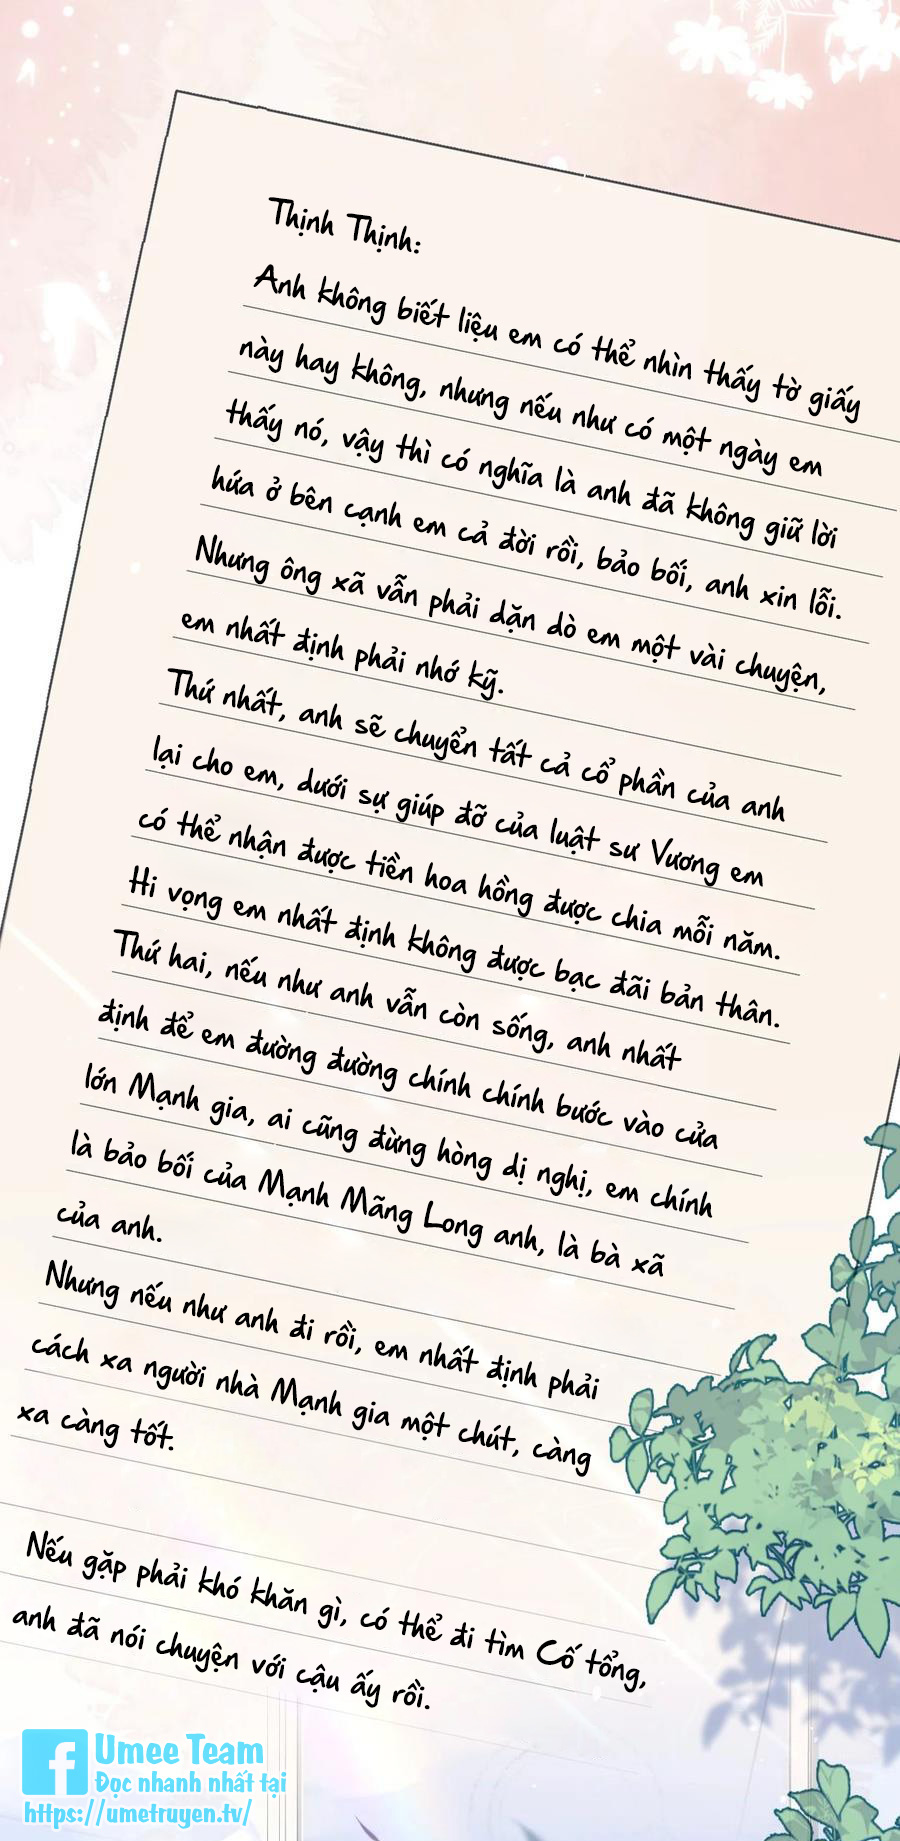 Thịnh Thịnh:
Anh không biết liệu em có thể nhìn thấy tờ giấy
này hay không, nhưng nếu như có một ngày em
thấy nó, vậy thì có nghĩa là anh đã không giữ lời
hứa ở bên cạnh em cả đời rồi, bảo bối, anh xin lỗi.
Nhưng ông xã vẫn phải dặn dò em một vài chuyện,
em nhất định phải nhớ kỹ.
Thứ nhất, anh sẽ chuyển tất cả cổ phần của anh
lại cho em, dưới sự giúp đỡ của luật sư Vương em
có thể nhận được tiền hoa hồng được chia mỗi năm.
Hi vọng em nhất định không được bạc đãi bản thân.
Thứ hai, nếu như anh vẫn còn sống, anh nhất
định để em đường đường chính chính bước vào cửa
lớn Mạnh gia, ai cũng đừng hòng dị nghị, em chính
là bảo bối của Mạnh Mãng Long anh, là bà xã
của anh.
Nhưng nếu như anh đi rồi, em nhất định phải
cách xa người nhà Mạnh gia một chút, càng
xa càng tốt.
Nếu gặp phải khó khăn gì, có thể đi tìm Cố tổng,
anh đã nói chuyện với cậu ấy rồi.
f Umee Team
Đọc nhanh nhất tại
https://umetruyen.tv/